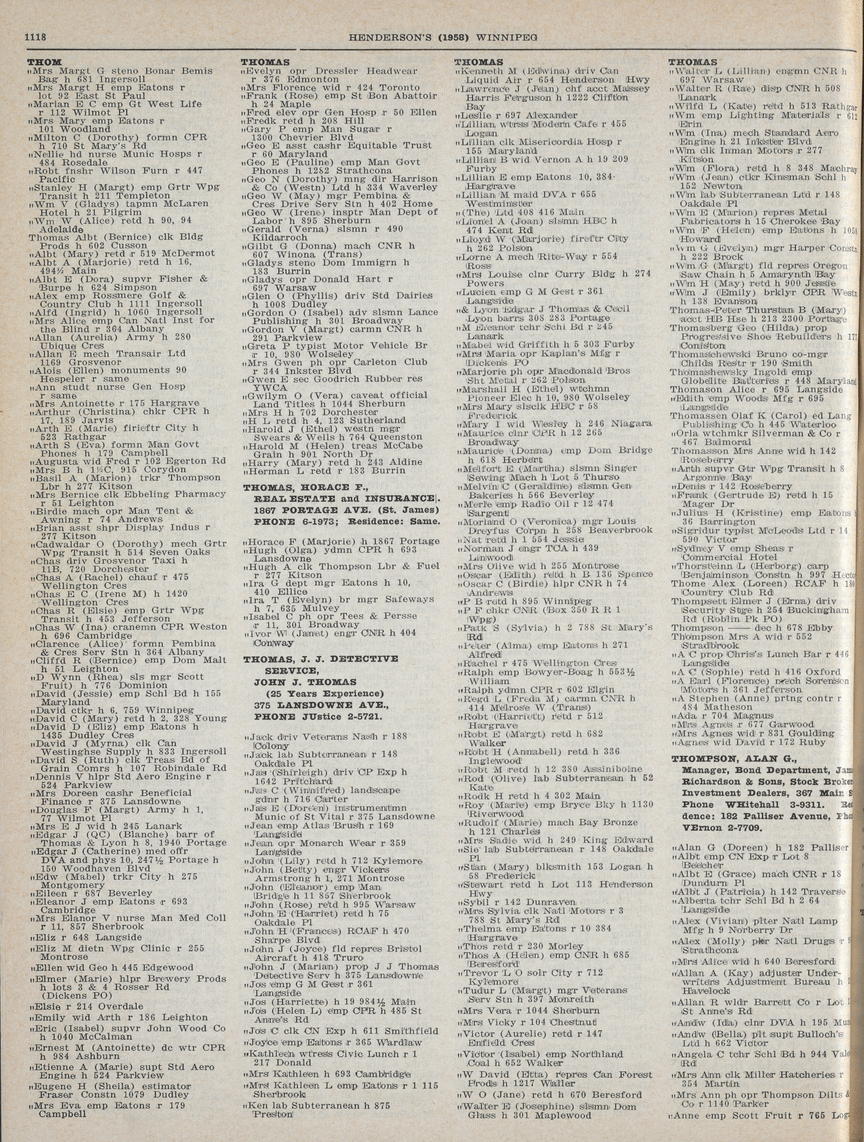 1118
HENDERSON'S (1958) WINNIPEG
THOM
„Mrs Margt G steno Bonar Bemis
Bag h 681 Ingersoll
„Mrs Margt H emp Eatons r
lot 92 East St Paul
„Marian E C emp Gt West Life
r 112 Wilmot Pl
„Mrs Mary emp Eatons r
101 Woodland
„Milton C (Dorothy) formn CPR
h 710 St Mary's Rd
„Nellie hd nurse Munic Hosps r
484 Rosedale
„Robt fnshr Wilson Furn r 447
Pacific
„Stanley H (Margt) emp Grtr Wpg
Transit h 211 Templeton
„Wm V (Gladys) tapmn McLaren
Hotel h 21 Pilgrim
„Wm W (Alice) retd h 90, 94
Adelaide
Thomas Albt (Bernice) clk Bldg
Prods h 602 Cusson
„Albt (Mary) retd r 519 McDermot
„Albt A (Marjorie) retd h 16,
494½ Main
„Albt E (Dora) supvr Fisher &
Burpe h 624 Simpson
„Alex emp Rossmere Golf &
Country Club h 1111 Ingersoll
„Alfd (Ingrid) h 1060 Ingersoll
„Mrs Alice emp Can Natl Inst for
the Blind r 364 Albany
„Allan (Aurelia) Army h 280
Ubique Cres
„Allan E mech Transair Ltd
1169 Grosvenor
„Alois (Ellen) monuments 90
Hespeler r same
„Ann studt nurse Gen Hosp
r same
„Mrs Antoinette r 175 Hargrave
„Arthur (Christina) chkr CPR h
17, 189 Jarvis
„Arth E (Marie) firieftr City h
523 Rathgar
„Arth S (Eva) formn Man Govt
Phones h 179 Campbell
„Augusta wid Fred r 102 Egerton Rd
„Mrs B h 1½C, 915 Corydon
„Basil A (Marion) trkr Thompson
Lbr h 277 Kitson
„Mrs Bernice clk Ebbeling Pharmacy
r 51 Leighton
„Birdie mach opr Man Tent &
Awning r 74 Andrews
„Brian asst shpr Display Indus r
277 Kitson
„Cadwaldar O (Dorothy) mech Grtr
Wpg Transit h 514 Seven Oaks
„Chas driv Grosvenor Taxi h
11B, 720 Dorchester
„Chas A (Rachel) chauf r 475
Wellington Cres
„Chas E C (Irene M) h 1420
Wellington Cres
„Chas R (Elsie) emp Grtr Wpg
Transit h 453 Jefferson
„Chas W (Ina) cranemn CPR Weston
h 696 Cambridge
„Clarence (Alice) formn Pembina
& Cres Serv Stn h 364 Albany
„Cliffd R (Bernice) emp Dom Malt
h 51 Leighton
„D Wynn (Rhea) sls mgr Scott
Fruit) h 776 Dominion
„David (Jessie) emp Schl Bd h 155
Maryland
„David ctkr h 6, 759 Winnipeg
„David C (Mary) retd h 2, 328 Young
„David D (Eliz) emp Eatons h
1435 Dudley Cres
„David J (Myrna) clk Can
Westinghse Supply h 833 Ingersoll
„David S (Ruth) clk Treas Bd of
Grain Comrs h 107 Robindale Rd
„Dennis V hlpr Std Aero Engine r
524 Parkview
„Mrs Doreen cashr Beneficial
Finance r 375 Lansdowne
„Douglas F (Margt) Army h 1,
77 Wilmot Pl
„Mrs E J wid h 245 Lanark
„Edgar J (QC) (Blanche) barr of
Thomas & Lyon h 8, 1940 Portage
„Edgar J (Catherine) med offr
DVA and phys 10, 247½ Portage h
150 Woodhaven Blvd
„Edw (Mabel) trkr City h 275
Montgomery
„Eileen r 687 Beverley
„Eleanor J emp Eatons r 693
Cambridge
„Mrs Elanor V nurse Man Med Coll
r 11, 857 Sherburn
„Eliz r 648 Langside
„Eliz M dietn Wpg Clinic r 255
Montrose
„Ellen wid Geo h 445 Edgewood
„Elmer (Marie) hlpr Brewery Prods
h lots 3 & 4 Rosser Rd
(Dickens PO)
„Elsie r 214 Overdale
„Emily wid Arth r 186 Leighton
„Eric (Isabel) supvr John Wood Co
h 1040 McCalman
„Ernest M (Antoinette) dc wtr CPR
h 984 Ashburn
„Etienne A (Marie) supt Std Aero
Engine h 524 Parkview
„Eugene H (Sheila) estimator
Fraser Constn 1079 Dudley
„Mrs Eva emp Eatons r 179
Campbell
THOMAS
„Evelyn opr Dressler Headwear
r 376 Edmonton
„Mrs Florence wid r 424 Toronto
„Frank (Rose) emp St Bon Abattoir
h 24 Maple
„Fred elev opr Gen Hosp r 50 Ellen
„Fredk retd h 208 Hill
„Gary P emp Man Sugar r
1300 Chevrier Blvd
„Geo E asst cashr Equitable Trust
r 60 Maryland
„Geo E (Pauline) emp Man Govt
Phones h 1282 Strathcona
„Geo N (Dorothy) mng dir Harrison
& Co (Westn) Ltd h 334 Waverley
„Geo W (May) mgr Pembina &
Cres Drive Serv Stn h 402 Home
„Geo W (Irene) insptr Man Dept of
Labor h 895 Sherburn
„Gerald (Verna) slsmn r 490
Kildarroch
„Gilbt G (Donna) mach CNR h
607 Winona (Trans)
„Gladys steno Dom Immigrn h
183 Burrin
„Gladys opr Donald Hart r
697 Warsaw
„Glen O (Phyllis) driv Std Dairies
h 1008 Dudley
„Gordon O (Isabel) adv slsmn Lance
Publishing h 301 Broadway
„Gordon V (Margt) carmn CNR h
291 Parkview
„Greta P typist Motor Vehicle Br
r 10, 980 Wolseley
„Mrs Gwen ph opr Carleton Club
r 344 Inkster Blvd
„Gwen E sec Goodrich Rubber res
YWCA
„Gwilym O (Vera) caveat official
Land Titles h 1044 Sherburn
„Mrs H h 702 Dorchester
„H L retd h 4, 128 Sutherland
„Harold J (Ethel) westn mgr
Swears & Wells h 764 Queenston
„Harold M (Helen) treas McCabe
Grain h 901 North Dr
„Harry (Mary) retd h 243 Aldine
„Herman L retd r 183 Burrin
THOMAS, HORACE F.,
REAL ESTATE and INSURANCE,
1867 PORTAGE AVE. (St. James)
PHONE 6-1973; Residence: Same.
„Horace F (Marjorie) h 1867 Portage
„Hugh (Olga) ydmn CPR h 693
Lansdowne
„Hugh A clk Thompson Lbr & Fuel
r 277 Kitson
„Ira G dept mgr Eatons h 10,
410 Ellice
„Ira T (Evelyn) br mgr Safeways
h 7, 635 Mulvey
„Isabel C ph opr Tees & Persse
r 11, 301 Broadway
„Ivor W (Janet) engr CNR h 404
Conway
THOMAS, J. J. DETECTIVE
SERVICE,
JOHN J. THOMAS
(25 Years Experience)
375 LANSDOWNE AVE.,
PHONE JUstice 2-5721.
„Jack driv Veterans Nash r 188
Colony
„Jack lab Subterranean r 148
Oakdale Pl
„Jas (Shirleigh) driv CP Exp h
1642 Pritchard
„Jas C (Winnifred) landscape
gdnr h 716 Carter
„Jas E (Doreen) instrumentmn
Munic of St Vital r 375 Lansdowne
„Jean emp Atlas Brush r 169
Langside
„Jean opr Monarch Wear r 359
Langside
„John (Lily) retd h 712 Kylemore
„John (Betty) engr Vickers
Armstrong h 1, 271 Montrose
„John (Eleanor) emp Man
Bridge h 11 857 Sherburn
„John (Rose) retd h 995 Warsaw
„John E (Harriet) retd h 75
Oakdale Pl
„John H (Frances) RCAF h 470
Sharpe Blvd
„John J (Joyce) fld repres Bristol
Aircraft h 418 Truro
„John J (Marian) prop J J Thomas
Detective Serv h 375 Lansdowne
„Jos emp G M Gest r 361
Langside
„Jos (Harriette) h 19 984½ Main
„Jos (Helen L) emp CPR h 485 St
Anne's Rd
„Jos C clk CN Exp h 611 Smithfield
„Joyce emp Eatons r 365 Wardlaw
„Kathleen wtress Civic Lunch r 1
217 Donald
„Mrs Kathleen h 693 Cambridge
„Mrs Kathleen L emp Eatons r 1 115
Sherbrook
„Ken lab Subterranean h 875
Preston
THOMAS
„Kenneth M (Edwina) driv Can
Liquid Air r 654 Henderson Hwy
„Lawrence J (Jean) chf acct Massey
Harris Ferguson h 1222 Clifton
Bay
„Leslie r 697 Alexander
„Lillian wtrss Modern Cafe r 455
Logan
„Lillian clk Misericordia Hosp r
155 Maryland
„Lillian B wid Vernon A h 19 209
Furby
„Lillian E emp Eatons 10, 384
Hargrave
„Lillian M maid DVA r 655
Westminster
„(The) Ltd 408 416 Main
„Lionel A (Joan) slsmn HBC h
474 Kent Rd
„Lloyd W (Marjorie) fireftr City
h 262 Polson
„Lorne A mech Rite-Way r 554
Ross
„Mrs Louise clnr Curry Bldg h 274
Powers
„Lucien emp G M Gest r 361
Langside
„& Lyon Edgar J Thomas & Cecil
Lyon barrs 308 283 Portage
„M Eleanor tchr Schl Bd r 245
Lanark
„Mabel wid Griffith h 5 303 Furby
„Mrs Maria opr Kaplan's Mfg r
Dickens PO
„Marjorie ph opr Macdonald Bros
Sht Metal r 262 Polson
„Marshall H (Ethel) wtchmn
Pioneer Elec h 10, 980 Wolseley
„Mrs Mary slsclk HBC r 58
Frederick
„Mary I wid Wesley h 246 Niagara
„Maurice clnr CPR h 12 265
Broadway
„Maurice (Donna) emp Dom Bridge
h 618 Herbert
„Melfort E (Martha) slsmn Singer
Sewing Mach h Lot 5 Thurso
„Melvin C (Geraldine) slsmn Gen
Bakeries h 566 Beverley
„Merle emp Radio Oil r 12 474
Sargent
„Morland O (Veronica) mgr Louis
Dreyfus Corpn h 258 Beaverbrook
„Nat retd h 1 554 Jessie
„Norman J engr TCA h 439
Linwood
„Mrs Olive wid h 255 Montrose
„Oscar (Edith) retd h B 136 Spence
„Oscar C (Birdie) hlpr CNR h 74
Andrews
„P B retd h 895 Winnipeg
„P F chkr CNR (Box 350 R R 1
Wpg)
„Patk S (Sylvia) h 2 788 St Mary's
Rd
„Peter (Alma) emp Eatons h 271
Alfred
„Rachel r 475 Wellington Cres
„Ralph emp Bowyer-Boag h 553½
William
„Ralph ydmn CPR r 602 Elgin
„Regd L (Freda M) carmn CNR h
414 Melrose W (Trans)
„Robt (Harriett) retd r 512
Hargrave
„Robt E (Margt) retd h 682
Walker
„Robt H (Annabell) retd h 336
Inglewood
„Robt M retd h 12 380 Assiniboine
„Rod (Olive) lab Subterranean h 52
Kate
„Rodk H retd h 4 302 Main
„Roy (Marie) emp Bryce Bky h 1130
Riverwood
„Rudolf (Marie) mach Bay Bronze
h 121 Charles
„Mrs Sadie wid h 249 King Edward
„Sie lab Subterranean r 148 Oakdale
Pl
„Stan (Mary) blksmith 153 Logan h
58 Frederick
„Stewart retd h Lot 113 Henderson
Hwy
„Sybil r 142 Dunraven
„Mrs Sylvia clk Natl Motors r 3
788 St Mary's Rd
„Thelma emp Eatons r 10 384
Hargrave
„Thos retd r 230 Morley
„Thos A (Helen) emp CNR h 685
Beresford
„Trevor L O solr City r 712
Kylemore
„Tudur L (Margt) mgr Veterans
Serv Stn h 397 Monreith
„Mrs Vera r 1044 Sherburn
„Mrs Vicky r 104 Chestnut
„Victor (Aurelie) retd r 147
Enfield Cres
„Victor (Isabel) emp Northland
Coal h 652 Walker
„W David (Etta) repres Can Forest
Prods h 1217 Waller
„W O (Jane) retd h 670 Beresford
„Walter E (Josephine) slsmn Dom
Glass h 301 Maplewood
THOMAS
„Walter L (Lillian) engmn CNR h
697 Warsaw
„Walter R (Rae) disp CNR h 508
Lanark
„Wilfd L (Kate) retd h 513 Rathgar
„Wm emp Lighting Materials r 612
Erin
„Wm (Ina) mech Standard Aero
Engine h 21 Inkster Blvd
„Wm clk Inman Motors r 277
Kitson
„Wm (Flora) retd h 8 348 Machray
„Wm (Jean) ctkr Kinsman Schl h
152 Newton
„Wm lab Subterranean Ltd r 148
Oakdale Pl
„Wm E (Marion) repres Metal
Fabricators h 15 Cherokee Bay
„Wm F (Helen) emp Eatons h 105
Howard
„Wm G (Evelyn) mgr Harper Const
h 222 Brock
„Wm G (Margt) fld repres Oregon
Saw Chain h 5 Amarynth Bay
„Wm H (May) retd h 900 Jessie
„Wm J (Emily) brklyr CPR West
h 138 Evanson
Thomas-Peter Thurstan B (Mary)
acct HB Hse h 213 2300 Portage
Thomasberg Geo (Hilda) prop
Progressive Shoe Rebuilders h 17
Coniston
Thomaschewski Bruno co-mgr
Childs Restr r 190 Smith
Thomashewsky Ingold emp
Globelite Batteries r 448 Maryland
Thomason Alice r 695 Langside
„Edith emp Woods Mfg r 695
Langside
Thomassen Olaf K (Carol) ed Lang
Publishing Co h 445 Waterloo
„Orla wtchmkr Silverman & Co r
467 Balmoral
Thomasson Mrs Anne wid h 142
Roseberry
„Arth supvr Gtr Wpg Transit h 8
Argonne Bay
„Denis r 142 Roseberry
„Frank (Gertrude E) retd h 15
Mager Dr
„Julius H (Kristine) emp Eatons
36 Barrington
„Sigridur typist McLeods Ltd r 14
590 Victor
„Sydney V emp Shea's r
Commercial Hotel
„Thorsteinn L (Herborg) carp
Benjaminson Constn h 997
Thome Alex (Loreen) RCAF h
Country Club Rd
Thompsett Elmer J (Erna) driv
Security Stge h 254 Buckingham
Rd (Roblin Pk PO)
Thompson —— dec h 678 Ebby
Thompson Mrs A wid r 552
Stradbrook
„A C prop Chris's Lunch Bar r 446
Langside
„A C (Sophie) retd h 416 Oxford
„A Earl (Florence) mech Sorenson
Motors h 361 Jefferson
„A Stephen (Anne) prtng contr r
484 Matheson
„Ada r 704 Magnus
„Mrs Agnes r 677 Garwood
„Mrs Agnes wid r 831 Goulding
„Agnes wid David r 172 Ruby
THOMPSON, ALAN G.,
Manager, Bond Department, Jam
Richardson & Sons, Stock Broker
Investment Dealers, 367 Main S
Phone WHitehall 3-9311. Re
dence: 182 Palliser Avenue, Pho
VErnon 2-7709.
„Alan G (Doreen) h 182 Palliser
„Albt emp CN Exp r Lot 8
Beecher
„Albt E (Grace) mach CNR r 18
Dundurn Pl
„Albt J (Patricia) h 142 Traverse
„Alberta tchr Schl Bd h 2 64
Langside
„Alex (Vivian) plter Natl Lamp
Mfg h 9 Norberry Dr
„Alex (Molly) pkr Natl Drugs r
Strathcona
„Mrs Alice wid h 640 Beresford
„Allan A (Kay) adjuster Under-
writers Adjustment Bureau h
Havelock
„Allan R wldr Barrett Co r Lot
St Anne's Rd
„Andw (Ida) clnr DVA h 195 Mun
„Andw (Bella) plt supt Bulloch's
Ltd h 662 Victor
„Angela C tchr Schl Bd h 944 Vale
Rd
„Mrs Ann clk Miller Hatcheries r
354 Martin
„Mrs Ann ph opr Thompson Dilts &
Co r 1140 Parker
„Anne emp Scott Fruit r 765 Log